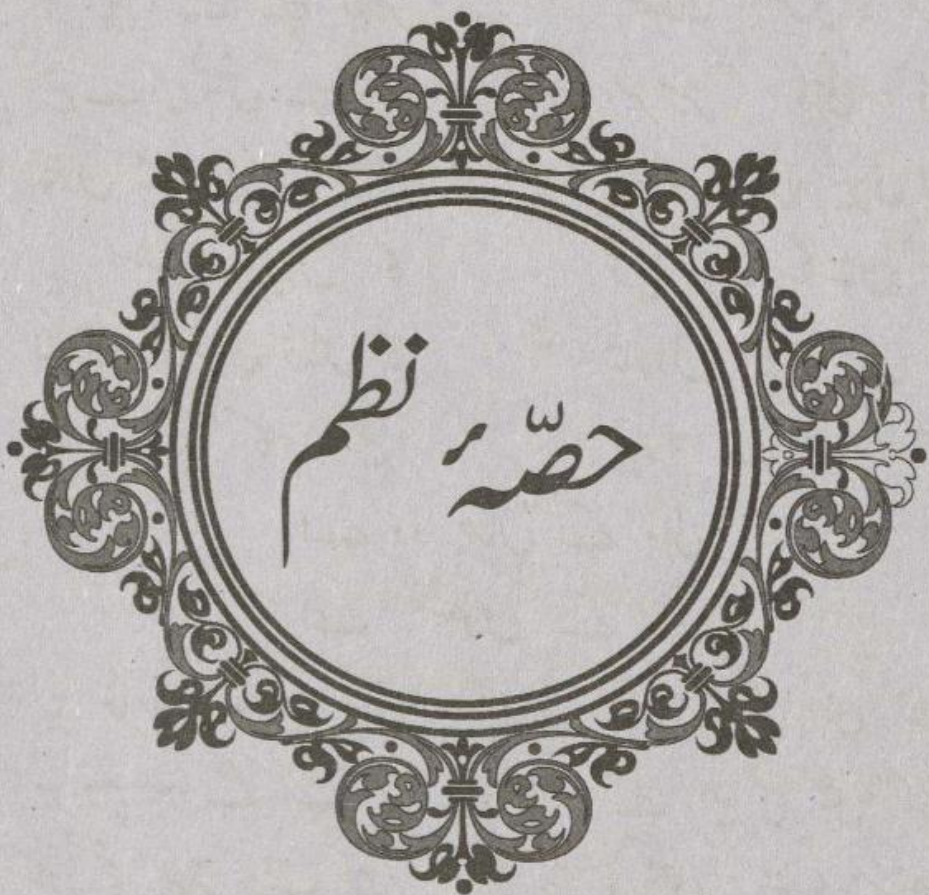 حصّۂ نظم